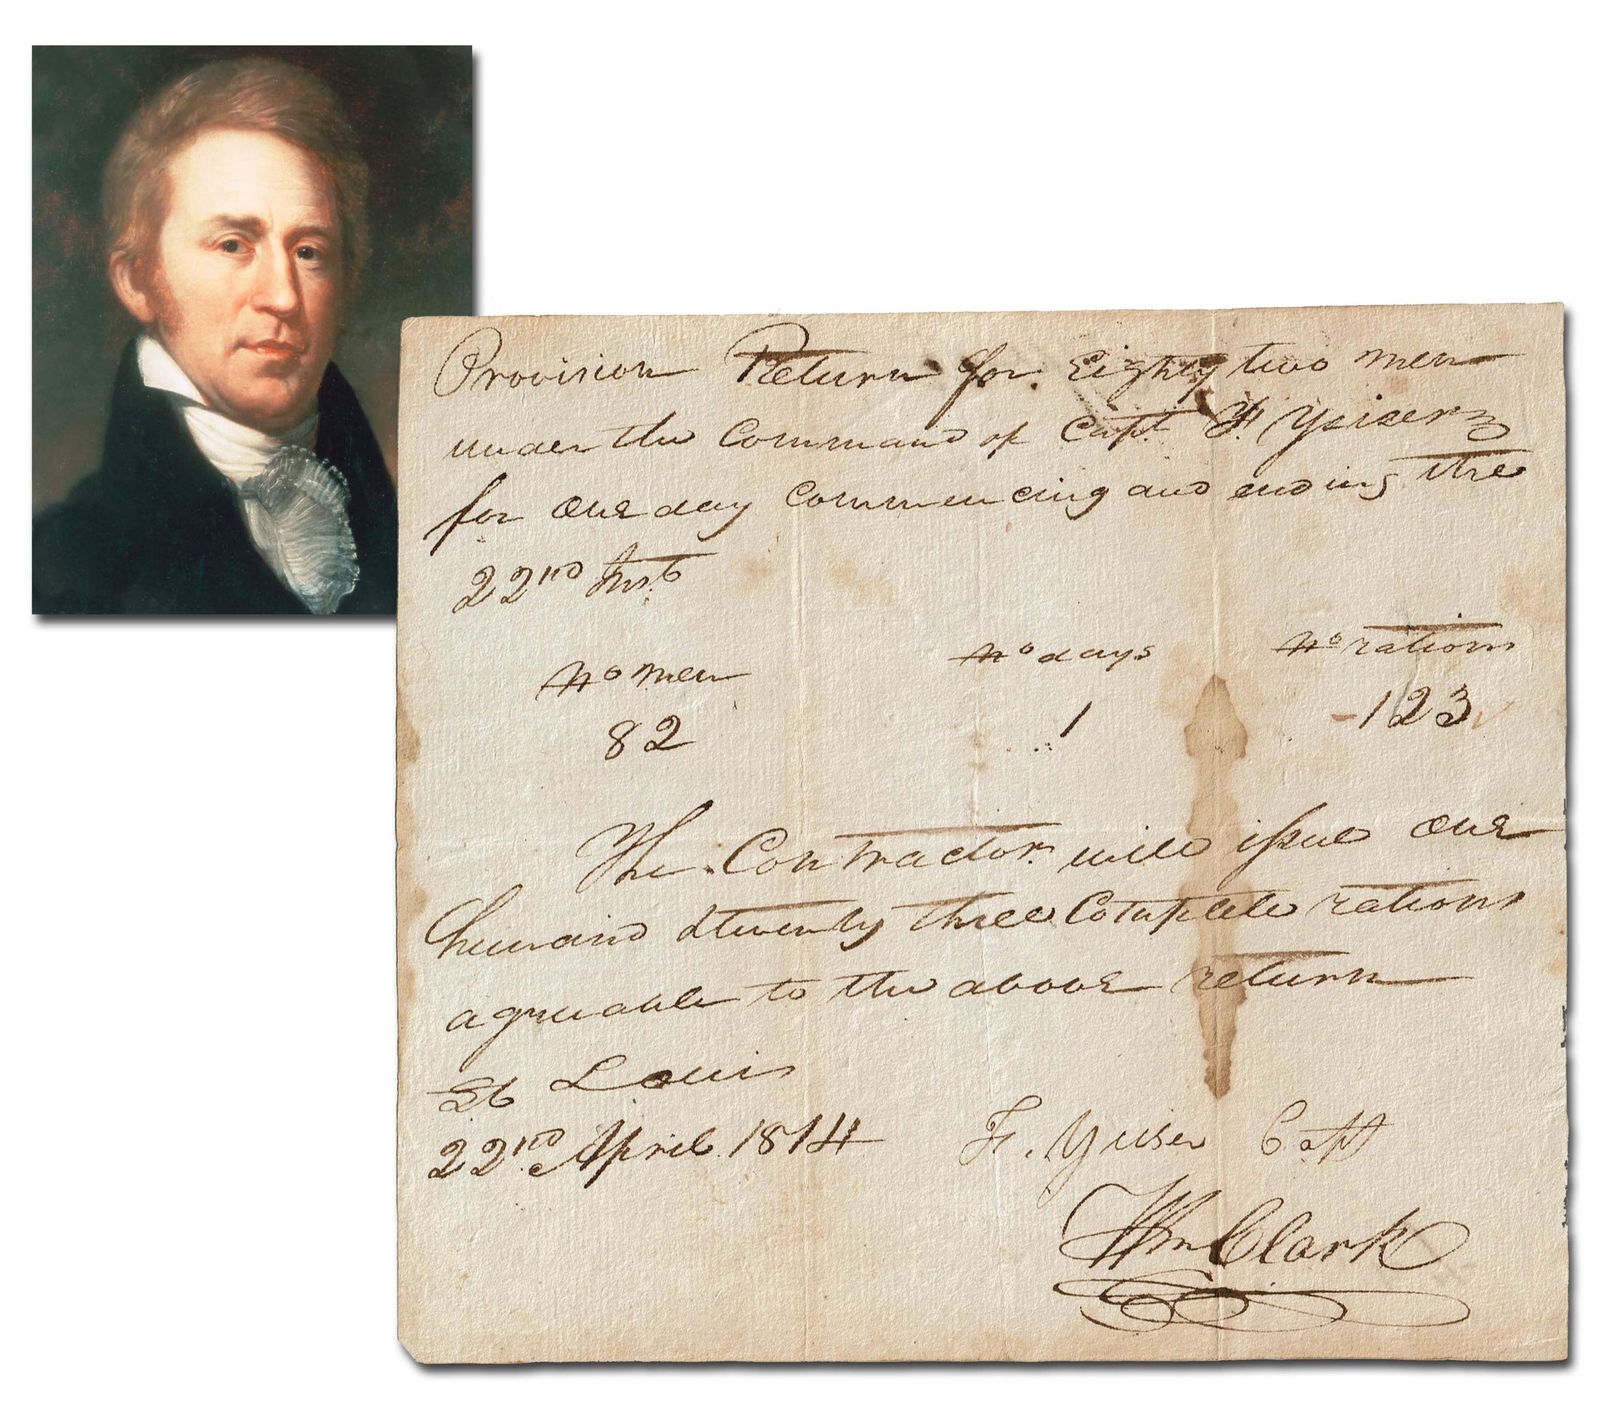 Provision Return for Eighty two men
under the Command of Capt. F. Yeizer
for one day Commencing and ending the
22nd Inst
No men
No days
No rations
82
1
123
The Contractor will issue one
hund and twenty three Complete rations
agreeable to the above return
St Louis
22nd April 1814
F. Yeiser Capt
Wm Clark